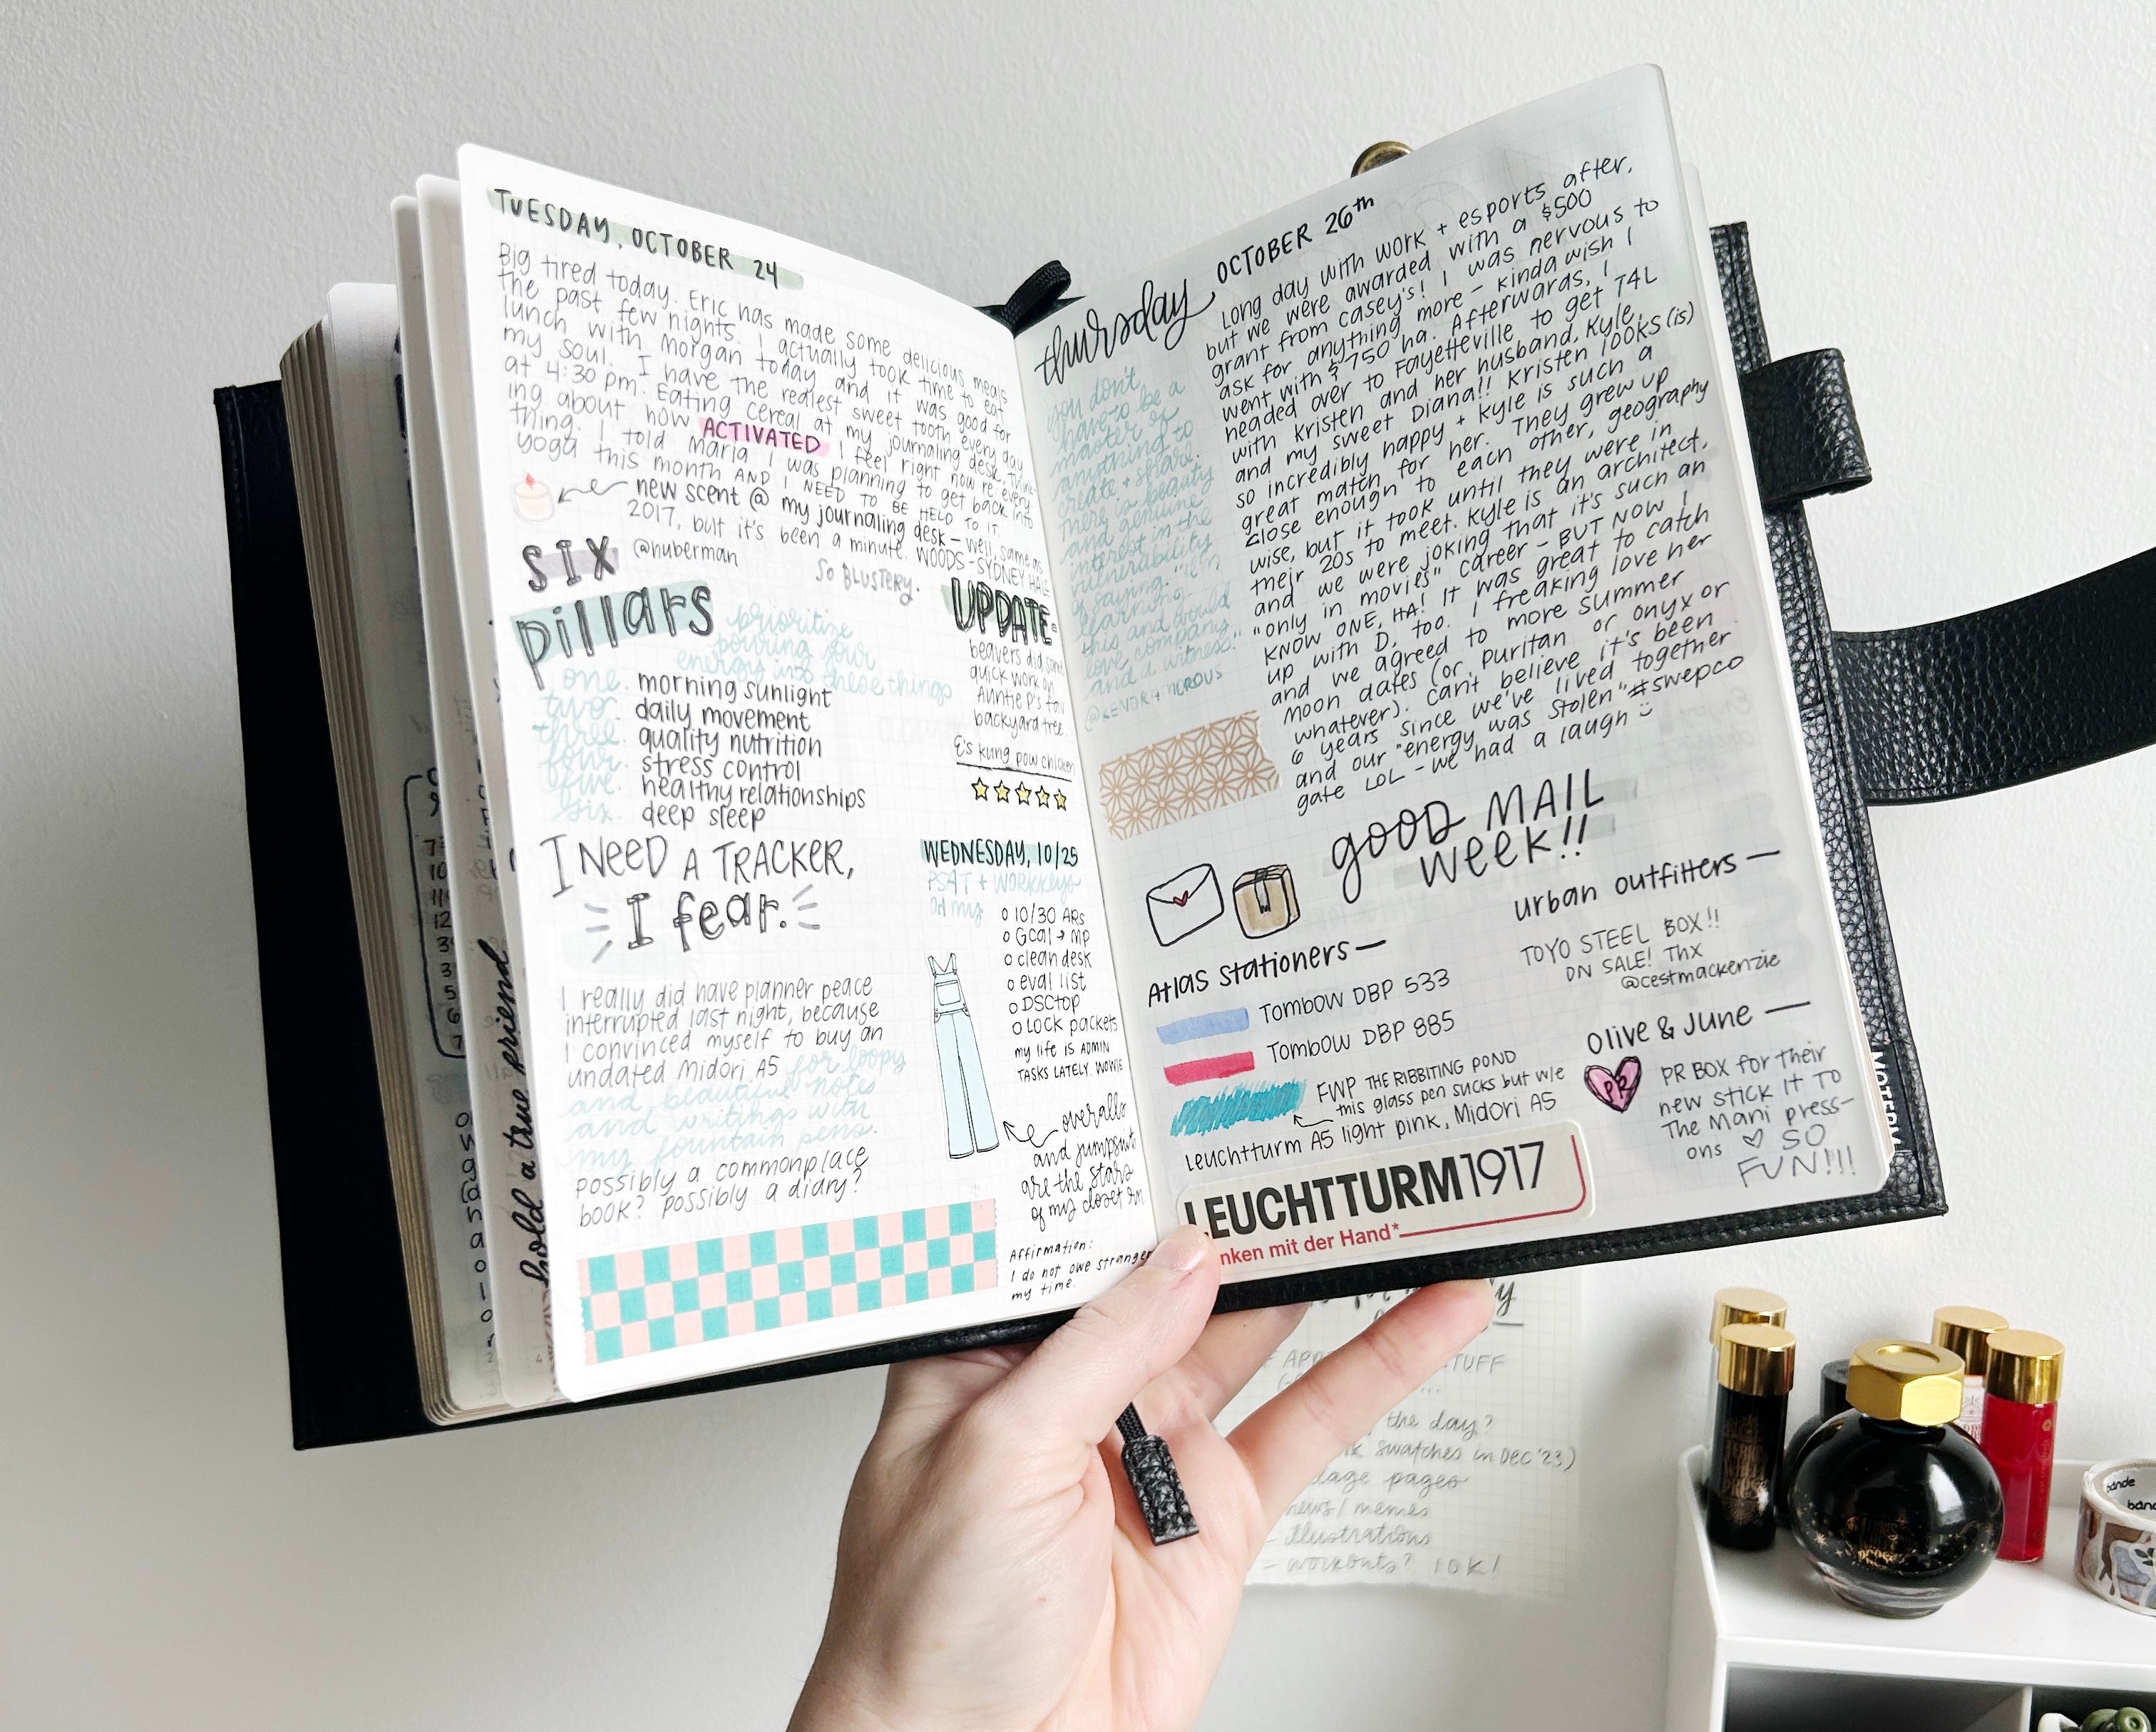 TUESDAY, OCTOBER 24
Big tired today. Eric has made some delicious meals
the past few nights. I actually took time to eat
lunch with Morgan today and it was good for
my soul. I have the realest sweet tooth every day
at 4:30 pm. Eating cereal at my journaling desk, think-
ing about how ACTIVATED I feel right now re: every-
thing. I told Maria I was planning to get back into
yoga this month AND I NEED TO BE HELD TO IT.
new scent @ my journaling desk - well, same as
2017, but it's been a minute. WOODS - SYDNEY HALE
SO BLUSTERY.
SIX @huberman
pillars
prioritize
pouring your
energy into these things
one. morning sunlight
two. daily movement
three. quality nutrition
four. stress control
five. healthy relationships
six. deep sleep
I NEED A TRACKER,
I fear.
I really did have planner peace
interrupted last night, because
I convinced myself to buy an
undated Midori A5 for loopy
and beautiful notes
and writings with
my fountain pens.
possibly a commonplace
book? possibly a diary?
UPDATE
beavers did some
quick work on
Auntie P's fav
backyard tree.
E's kung pow chicken
WEDNESDAY, 10/25
PSAT + WORKKEYS
10/30 ARs
Gcal → MP
clean desk
eval list
DSCtop
Lock packets
my life IS ADMIN
TASKS LATELY. WOWIE
overalls
and jumpsuits
are the stars
of my closet rn.
Affirmation:
I do not owe strangers
my time.
thursday OCTOBER 26th
Long day with work + esports after,
but we were awarded with a $500
grant from casey's! I was nervous to
ask for anything more - kinda wish I
went with $750 ha. Afterwards, I
headed over to Fayetteville to get T4L
with Kristen and her husband, Kyle,
and my sweet Diana!! Kristen looks (is)
so incredibly happy + Kyle is such a
great match for her. They grew up
close enough to each other, geography
wise, but it took until they were in
their 20s to meet. Kyle is an architect,
and we were joking that it's such an
"only in movies" career - BUT NOW I
KNOW ONE, HA! It was great to catch
up with D, too. I freaking love her
and we agreed to more summer
moon dates (or Puritan or onyx or
whatever). Can't believe it's been
6 years since we've lived together
and our "energy was stolen" #swepco
gate LOL - we had a laugh
you don't
have to be a
master of
anything to
create + share.
There is beauty
and genuine
interest in the
vulnerability
of saying, "I'm
learning
this and would
love company
and a witness."
GOOD MAIL
WEEK!!
Atlas Stationers —
Tombow DBP 533
Tombow DBP 885
FWP THE RIBBITING POND
this glass pen sucks but w/e
Leuchtturm A5 light pink, Midori A5
urban outfitters —
TOYO STEEL BOX!!
ON SALE! Thx
@cestmackenzie
Olive & June —
PR
PR BOX for their
new Stick It TO
The Mani press-
ons SO
FUN!!!
LEUCHTTURM1917
nken mit der Hand*
hold a true friend
the day?
swatches in Dec '23)
pages
news / memes
- illustrations
- workouts? 10K!
bande